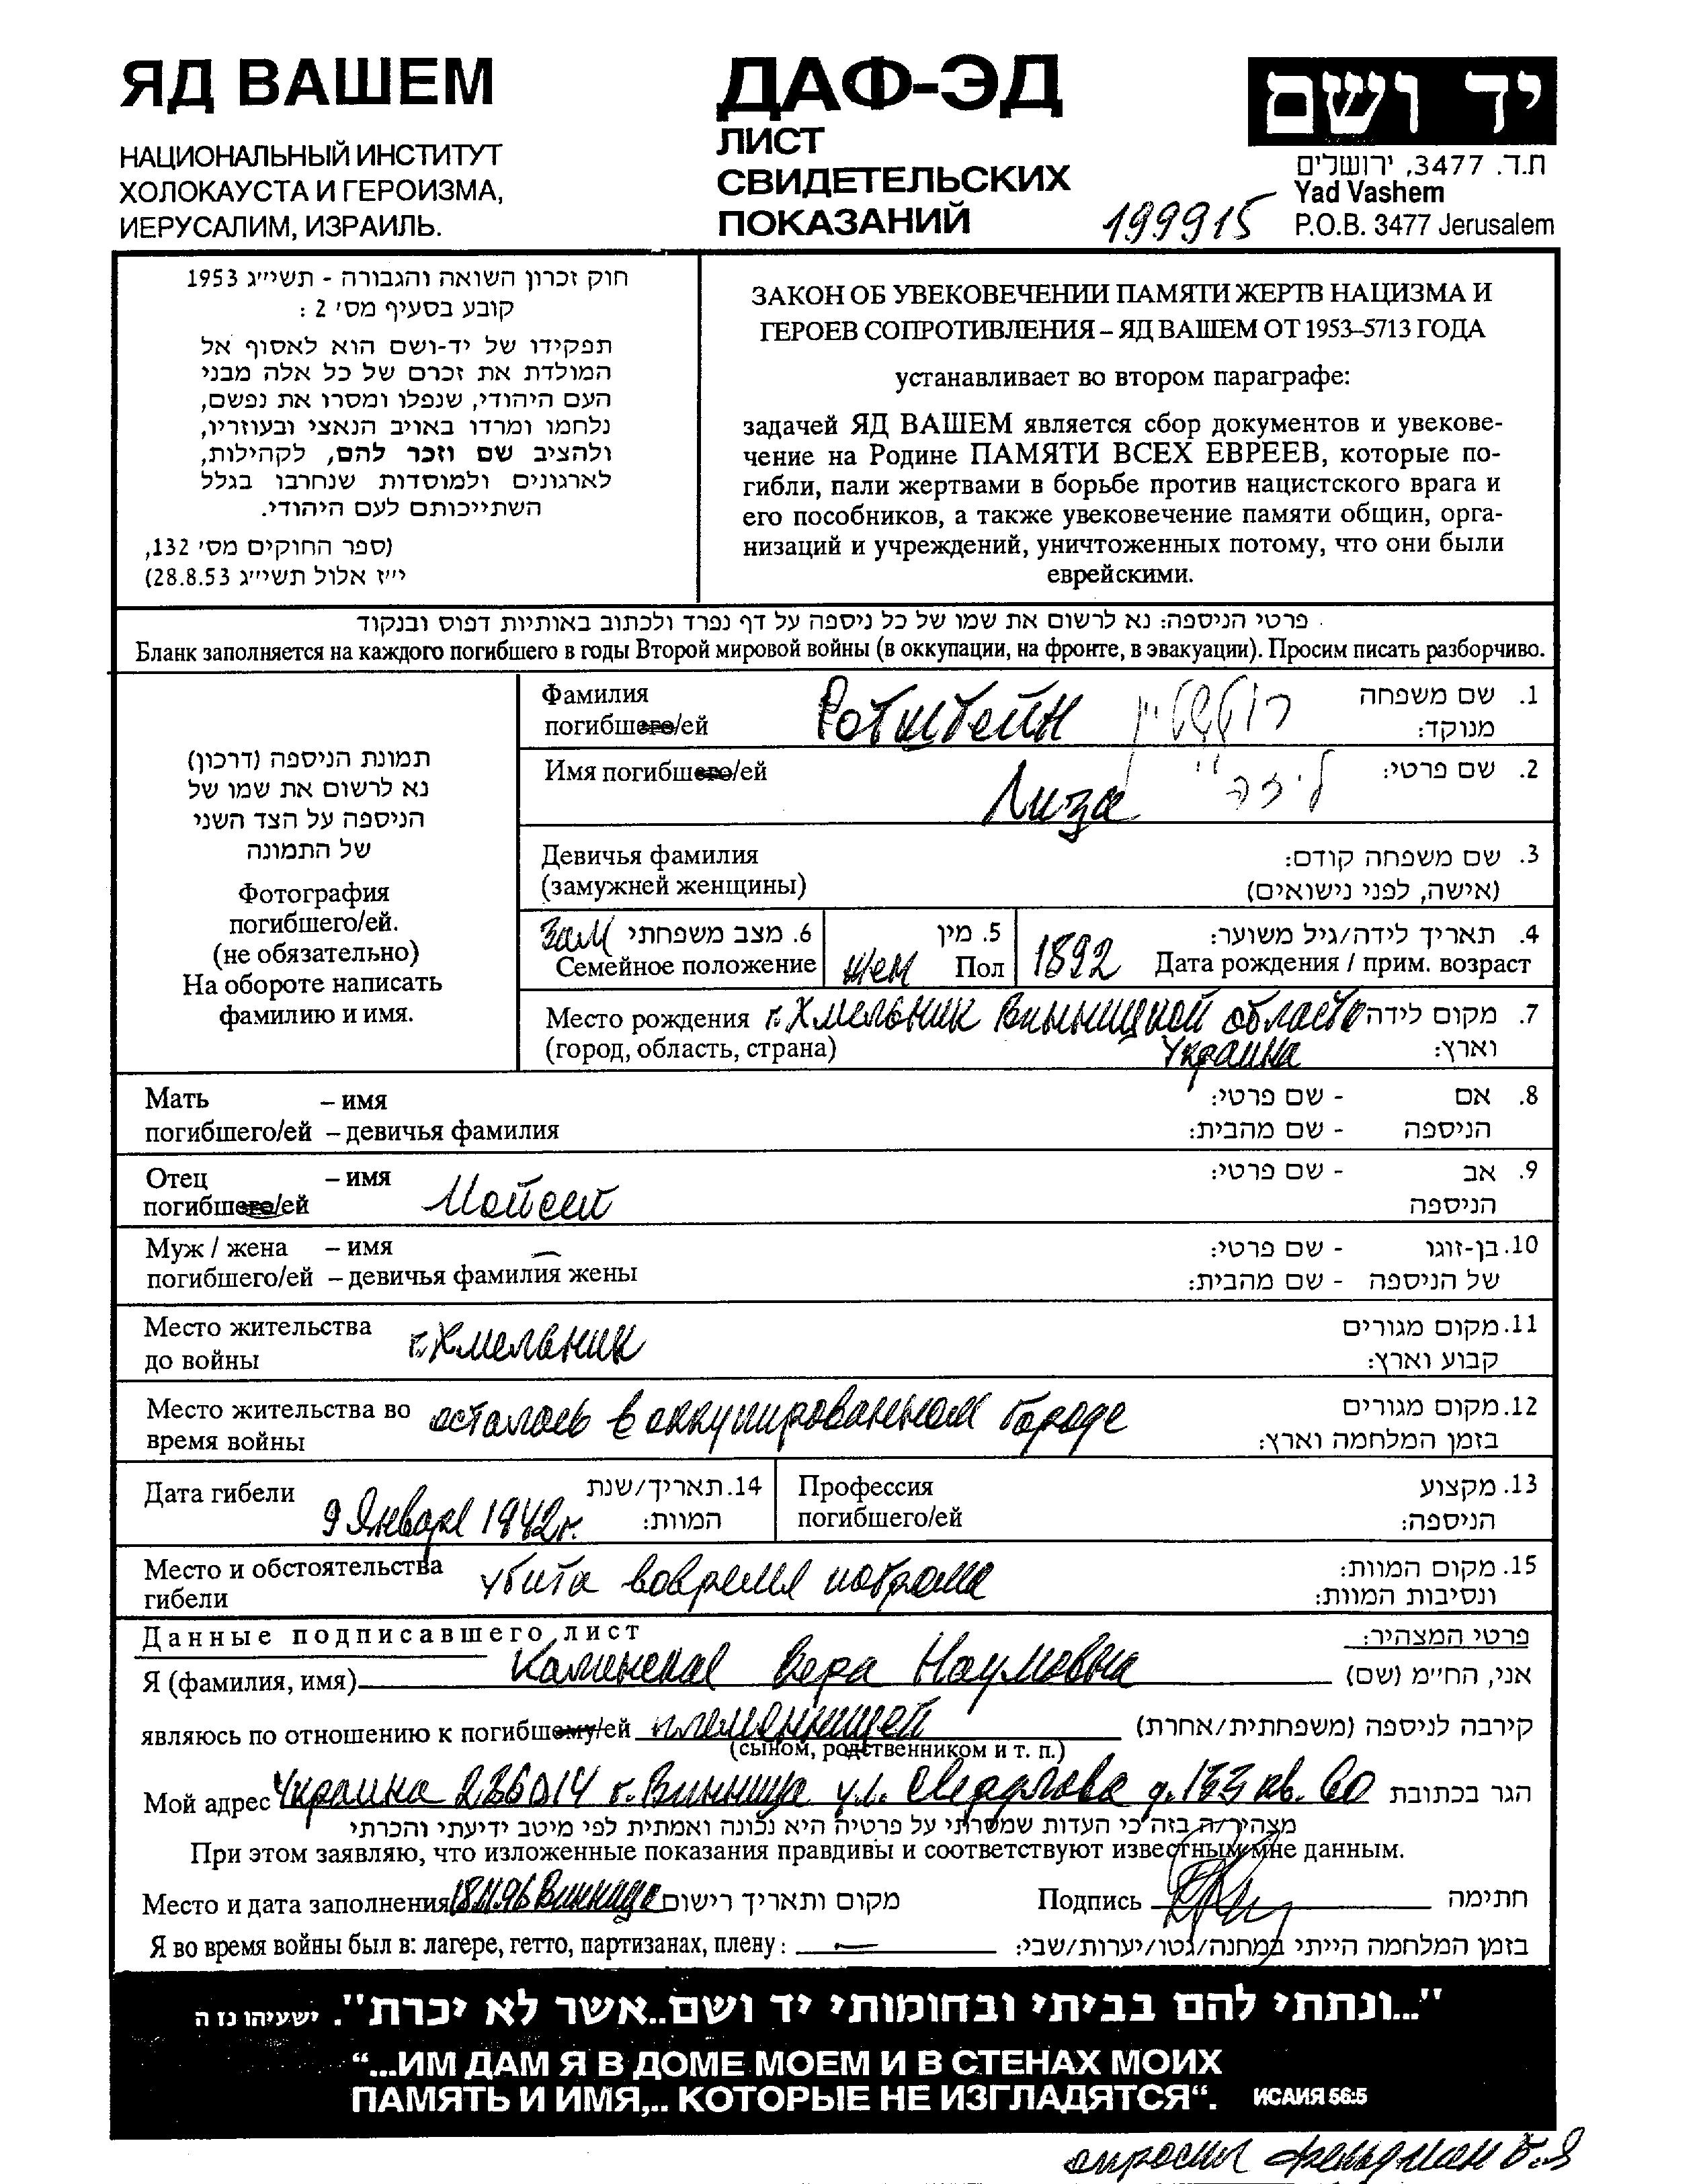 ЯД ВАШЕМ
НАЦИОНАЛЬНЫЙ ИНСТИТУТ
ХОЛОКАУСТА И ГЕРОИЗМА,
ИЕРУСАЛИМ, ИЗРАИЛЬ.
ДАФ-ЭД
ЛИСТ
СВИДЕТЕЛЬСКИХ
ПОКАЗАНИЙ
199915
יד ושם
ת.ד. 3477, ירושלים
Yad Vashem
P.O.B. 3477 Jerusalem
חוק זכרון השואה והגבורה - תשי״ג 1953
קובע בסעיף מס׳ 2 :
תפקידו של יד-ושם הוא לאסוף אל
המולדת את זכרם של כל אלה מבני
העם היהודי, שנפלו ומסרו את נפשם,
נלחמו ומרדו באויב הנאצי ובעוזריו,
ולהציב שם וזכר להם, לקהילות,
לארגונים ולמוסדות שנחרבו בגלל
השתייכותם לעם היהודי.
(ספר החוקים מס׳ 132,
י״ז אלול תשי״ג 28.8.53)
ЗАКОН ОБ УВЕКОВЕЧЕНИИ ПАМЯТИ ЖЕРТВ НАЦИЗМА И
ГЕРОЕВ СОПРОТИВЛЕНИЯ – ЯД ВАШЕМ ОТ 1953–5713 ГОДА
устанавливает во втором параграфе:
задачей ЯД ВАШЕМ является сбор документов и увекове-
чение на Родине ПАМЯТИ ВСЕХ ЕВРЕЕВ, которые по-
гибли, пали жертвами в борьбе против нацистского врага и
его пособников, а также увековечение памяти общин, орга-
низаций и учреждений, уничтоженных потому, что они были
еврейскими.
פרטי הניספה: נא לרשום את שמו של כל ניספה על דף נפרד ולכתוב באותיות דפוס ובנקוד
Бланк заполняется на каждого погибшего в годы Второй мировой войны (в оккупации, на фронте, в эвакуации). Просим писать разборчиво.
תמונת הניספה (דרכון)
נא לרשום את שמו של
הניספה על הצד השני
של התמונה
Фотография
погибшего/ей.
(не обязательно)
На обороте написать
фамилию и имя.
Фамилия Ротштейн רוטשטיין 1. שם משפחה
погибшего/ей מנוקד:
Имя погибшего/ей Лиза ליזה 2. שם פרטי:
Девичья фамилия 3. שם משפחה קודם:
(замужней женщины) (אישה, לפני נישואים)
Зам 6. מצב משפחתי
Семейное положение
жен 5. מין
Пол
1892 4. תאריך לידה/גיל משוער:
Дата рождения / прим. возраст
Место рождения г. Хмельник Винницкой область 7. מקום לידה
(город, область, страна) Украина וארץ:
Мать – имя 8. אם - שם פרטי:
погибшего/ей – девичья фамилия הניספה - שם מהבית:
Отец – имя Мойсей 9. אב - שם פרטי:
погибшего/ей הניספה
Муж / жена – имя – 10. בן-זוגו - שם פרטי:
погибшего/ей – девичья фамилия жены של הניספה - שם מהבית:
Место жительства г. Хмельник 11. מקום מגורים
до войны קבוע וארץ:
Место жительства во осталась в оккупированном городе 12. מקום מגורים
время войны בזמן המלחמה וארץ:
Дата гибели 9 Января 1942 г. 14. תאריך/שנת
המוות:
Профессия 13. מקצוע
погибшего/ей הניספה:
Место и обстоятельства убита вовремя погрома 15. מקום המוות:
гибели ונסיבות המוות:
Данные подписавшего лист פרטי המצהיר:
Я (фамилия, имя) Каминская Вера Наумовна אני, הח״מ (שם)
являюсь по отношению к погибшему/ей племянницей קירבה לניספה (משפחתית/אחרת)
(сыном, родственником и т. п.)
Мой адрес Украина 286014 г. Винница ул. Свердлова д. 153 кв. 60 הגר בכתובת
מצהיר/ה בזה כי העדות שמסרתי על פרטיה היא נכונה ואמתית לפי מיטב ידיעתי והכרתי
При этом заявляю, что изложенные показания правдивы и соответствуют известным мне данным.
Место и дата заполнения Винница מקום ותאריך רישום Подпись חתימה
Я во время войны был в: лагере, гетто, партизанах, плену: – בזמן המלחמה הייתי במחנה/גטו/יערות/שבי:
"...ונתתי להם בביתי ובחומותי יד ושם..אשר לא יכרת". ישעיהו נז ה
“...ИМ ДАМ Я В ДОМЕ МОЕМ И В СТЕНАХ МОИХ
ПАМЯТЬ И ИМЯ,.. КОТОРЫЕ НЕ ИЗГЛАДЯТСЯ“. ИСАИЯ 56:5
Фельдман